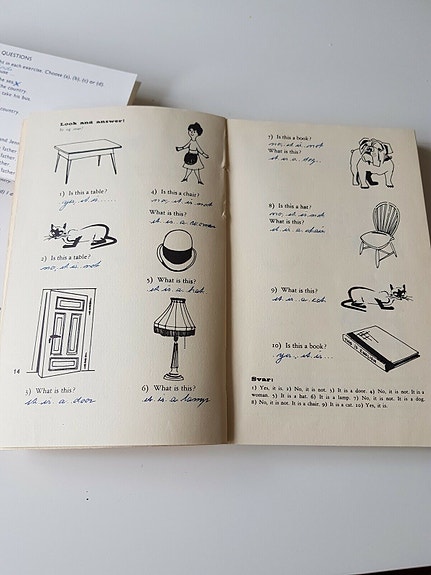 QUESTIONS
in each exercise. Choose (a), (b), (c) or (d).
the country.
take his box.
country.
and Jenn
father
father
father
Look and answer!
1) Is this a table?
yes, it is......
2) Is this a table?
no, it is not
3) What is this?
it is a door
14
4) Is this a chair?
no, it is not
What is this?
it is a woman
5) What is this?
it is a hat
6) What is this?
it is a lamp
7) Is this a book?
no, it is not
What is this?
it is a dog
8) Is this a hat?
no, it is not
What is this?
it is a chair
9) What is this?
it is a cat
10) Is this a book?
yes, it is...
Svar:
1) Yes, it is. 2) No, it is not. 3) It is a door. 4) No, it is not. It is a
woman. 5) It is a hat. 6) It is a lamp. 7) No, it is not. It is a dog.
8) No, it is not. It is a chair. 9) It is a cat. 10) Yes, it is.